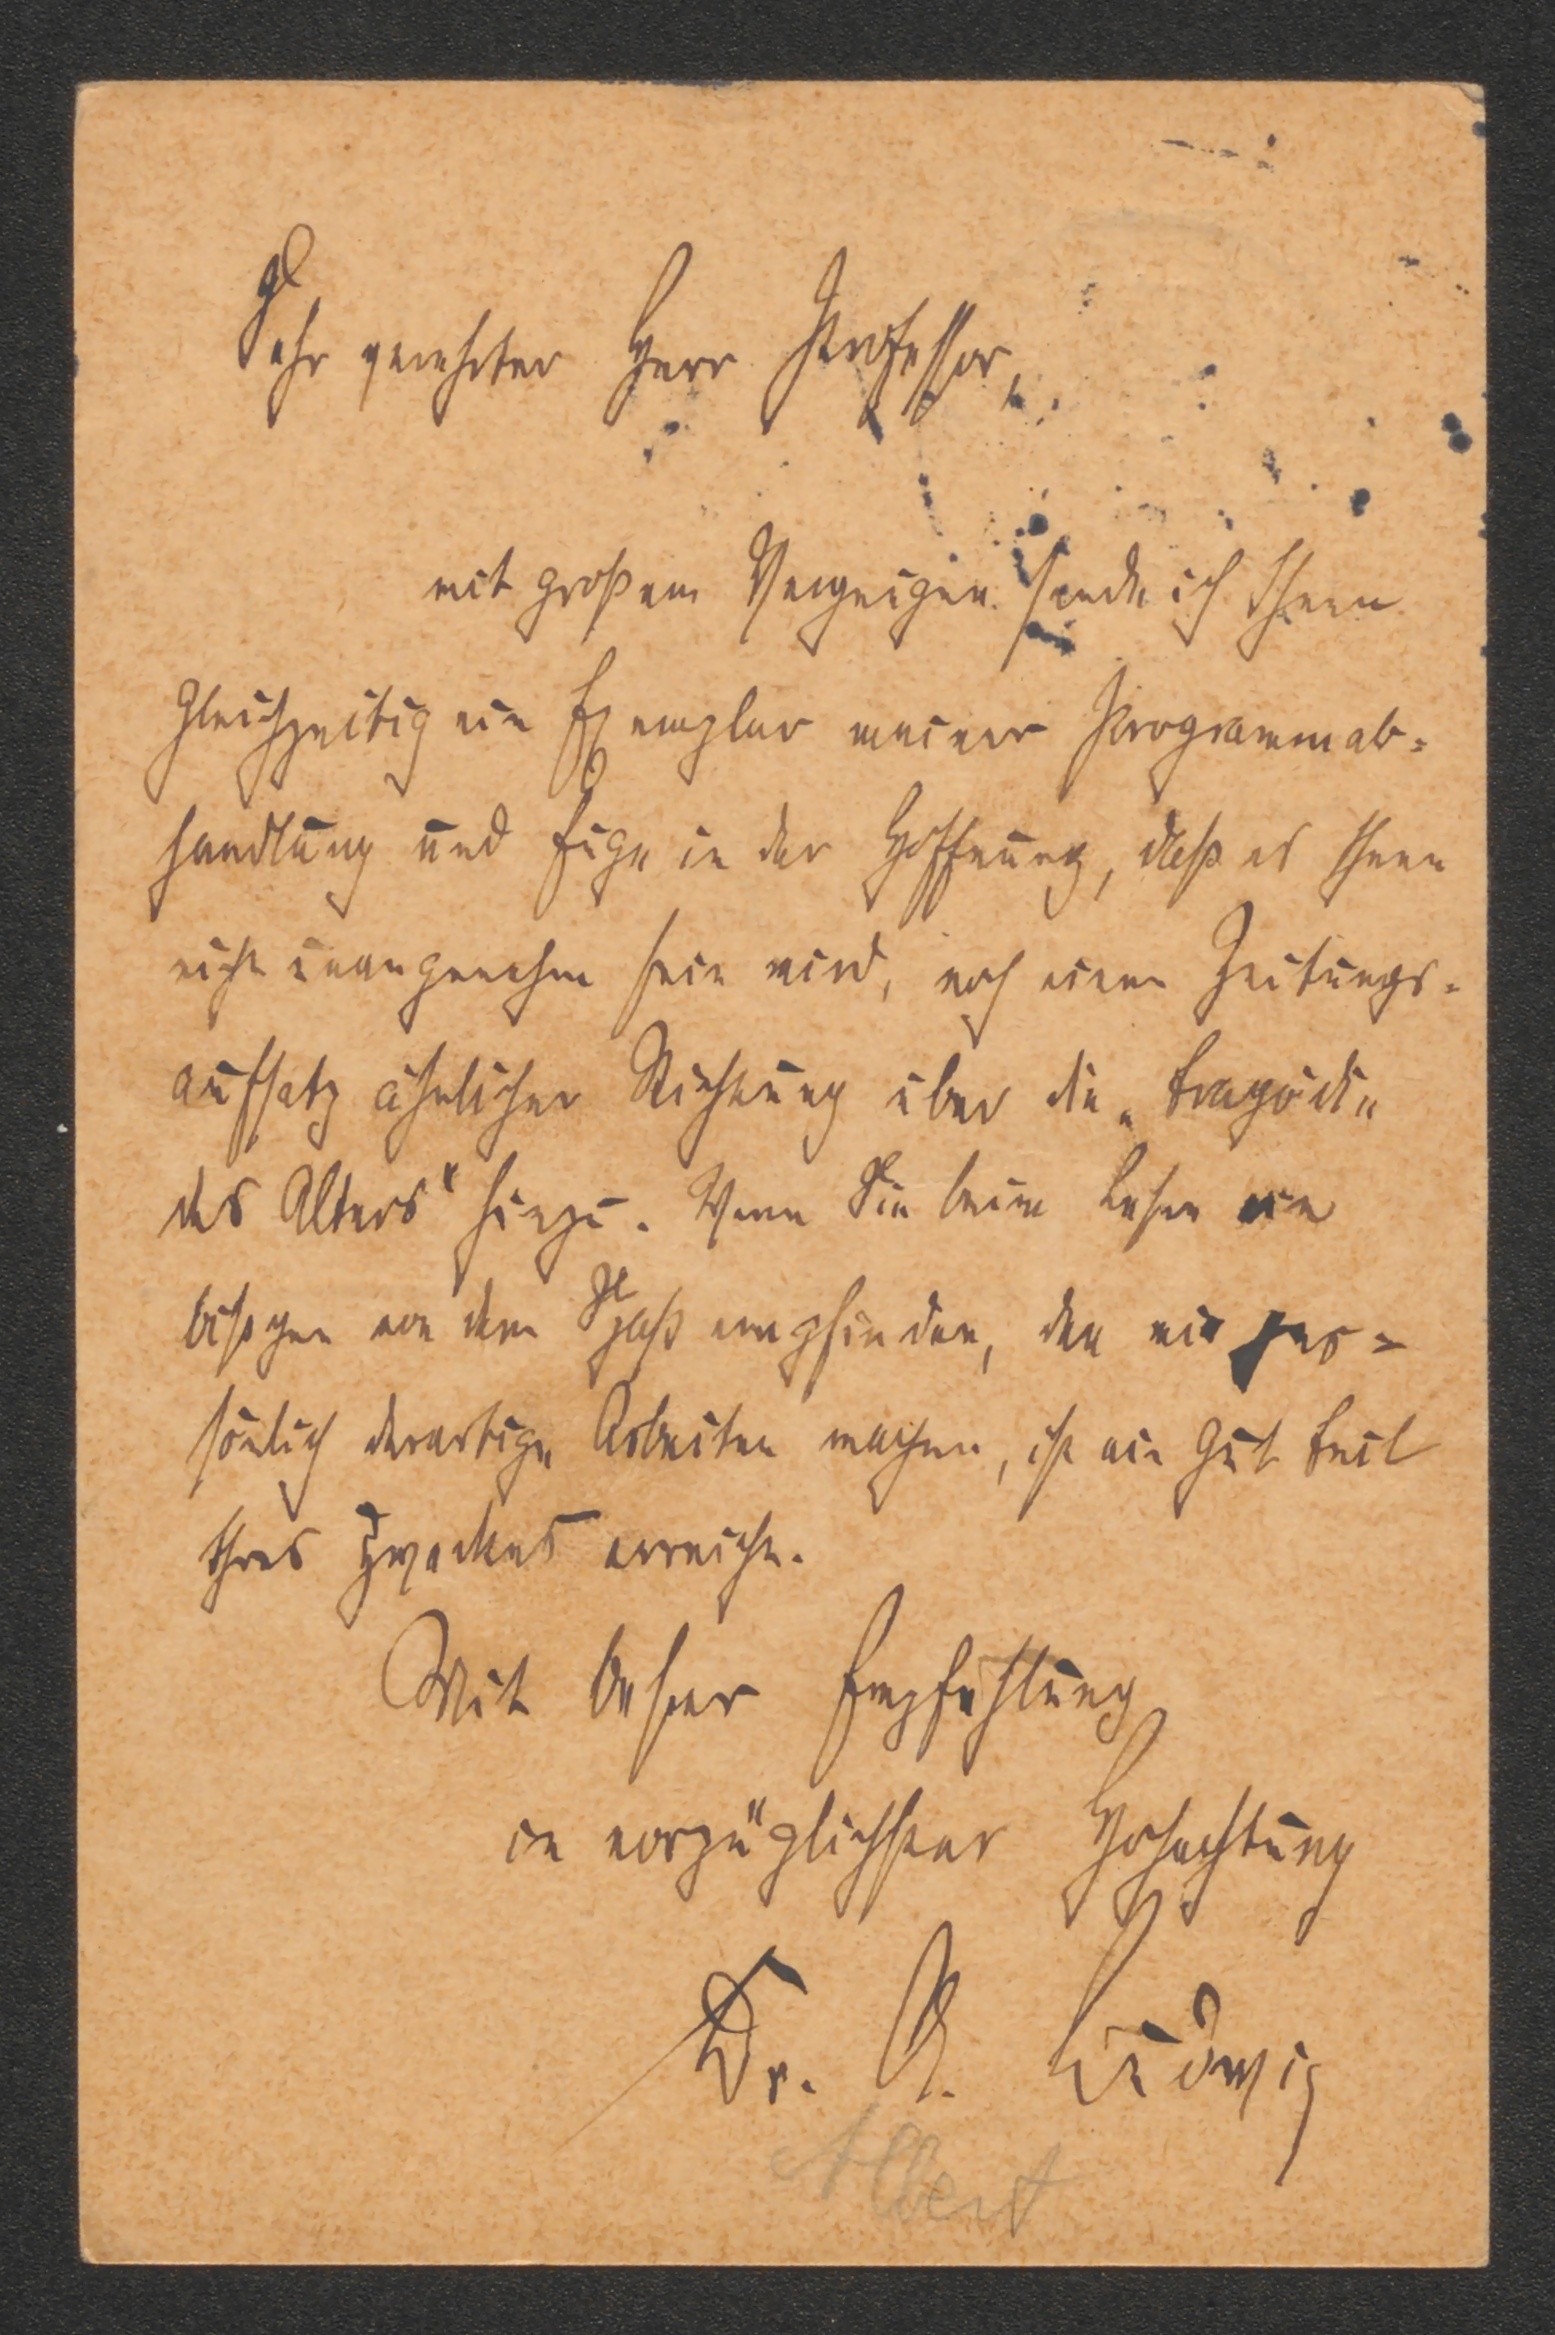 Sehr geehrter Herr Professor,
mit großem Vergnügen sende ich Ihnen
gleichzeitig ein Exemplar meiner Programmab-
handlung und füge in der Hoffnung, daß es Ihnen
nicht unangenehm sein wird, noch einen Zeitungs-
aufsatz ähnlicher Richtung über die „Tragödie
des Alters“ hinzu. Wenn Sie beim Lesen ein
bißchen von dem Spaß empfinden, den mir per-
sönlich derartige Arbeiten machen, ist ein gut Teil
ihres Zweckes erreicht.
Mit bester Empfehlung
in vorzüglichster Hochachtung
Dr. A. Ludwig
Albert